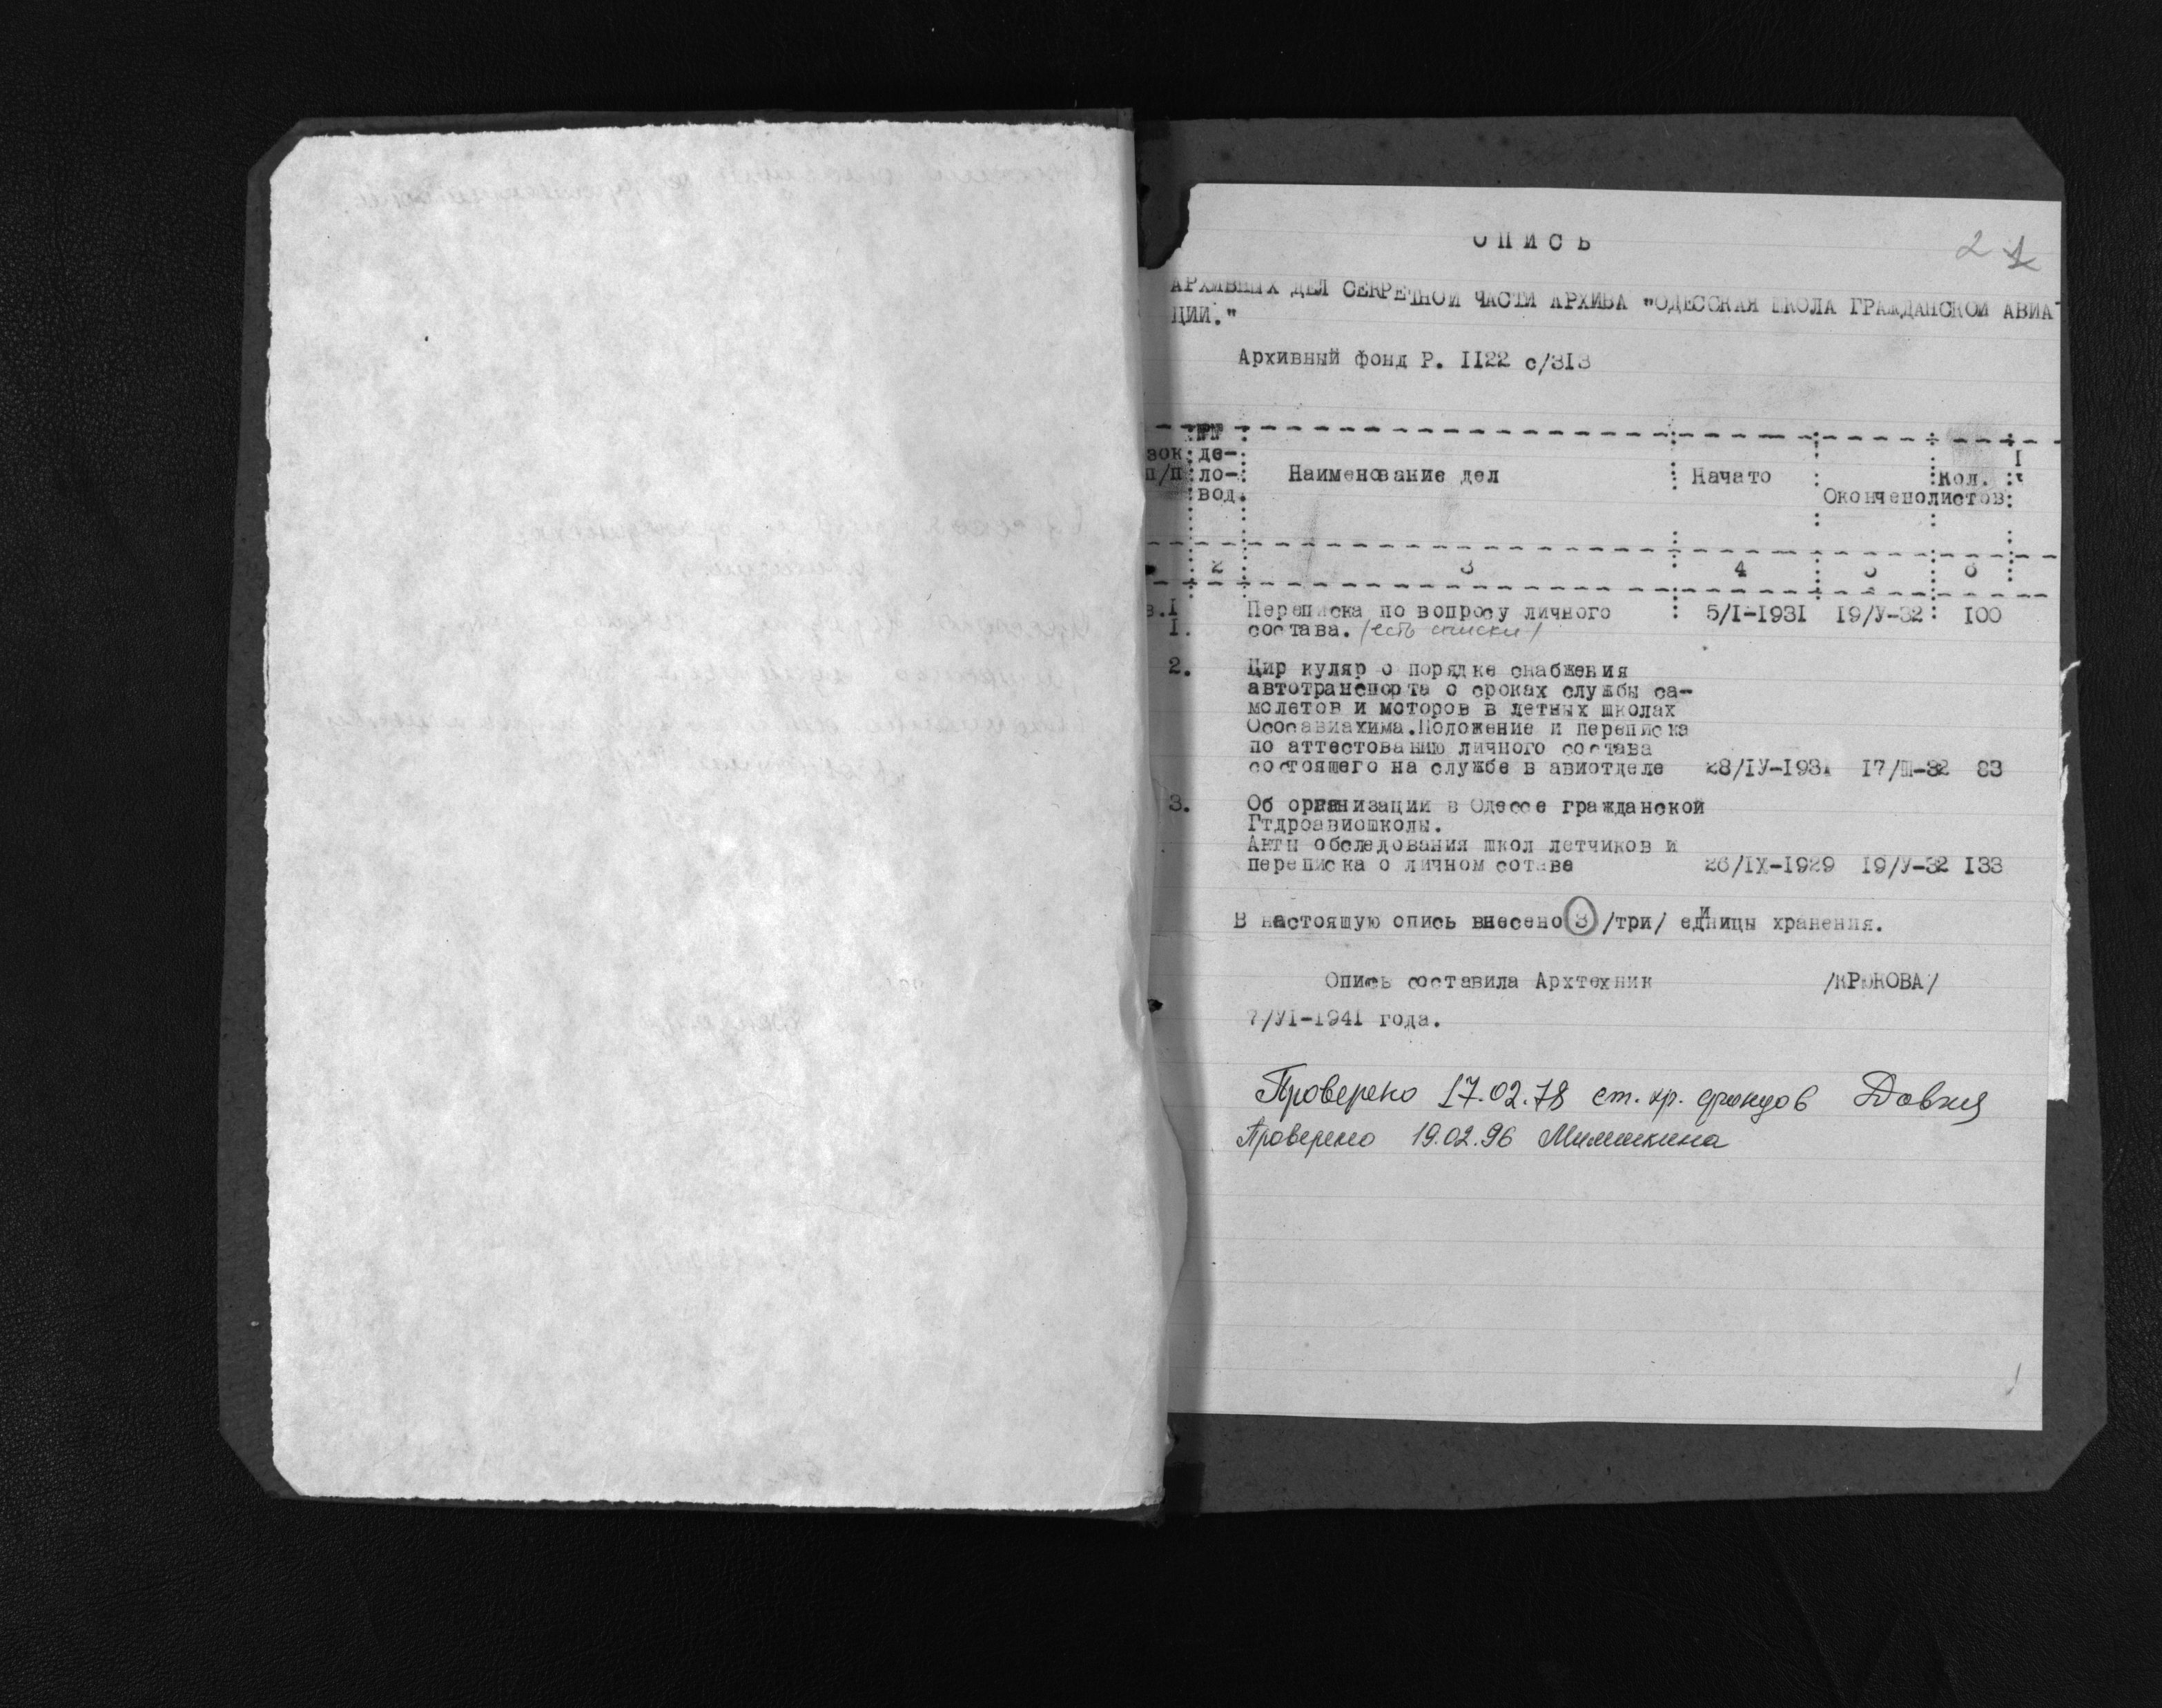 ОПИСЬ
2 1
АРХИВНЫХ ДЕЛ СЕКРЕТНОЙ ЧАСТИ АРХИВА "ОДЕССКАЯ ШКОЛА ГРАЖДАНСКОЙ АВИА
ЦИИ."
Архивный фонд Р. II22 с/313
№№
вок де-
п/п ло- Наименование дел Начато Кол.
вод. Окончено листов
2 3 4 5 6
в.I Переписка по вопросу личного 5/I-1931 19/У-32 100
I. состава. /есть списки/
2. Цир куляр о порядке снабжения
автотранспорта о сроках службы са-
молетов и моторов в летных школах
Осоавиахима.Положение и переписка
по аттестованию личного состава
состоящего на службе в авиотделе 28/IУ-1931 17/Ш-32 83
3. Об организации в Одессе гражданской
Гтдроавиошколы.
Акты обследования школ летчиков и
переписка о личном сотаве 26/IX-1929 19/У-32 133
В настояшую опись внесено 3 /три/ единицы хранения.
Опись составила Архтехник /КРЮКОВА/
7/УI-1941 года.
Проверено 17.02.78 ст. хр. фондов Довгия
Проверено 19.02.96 Мимишкина